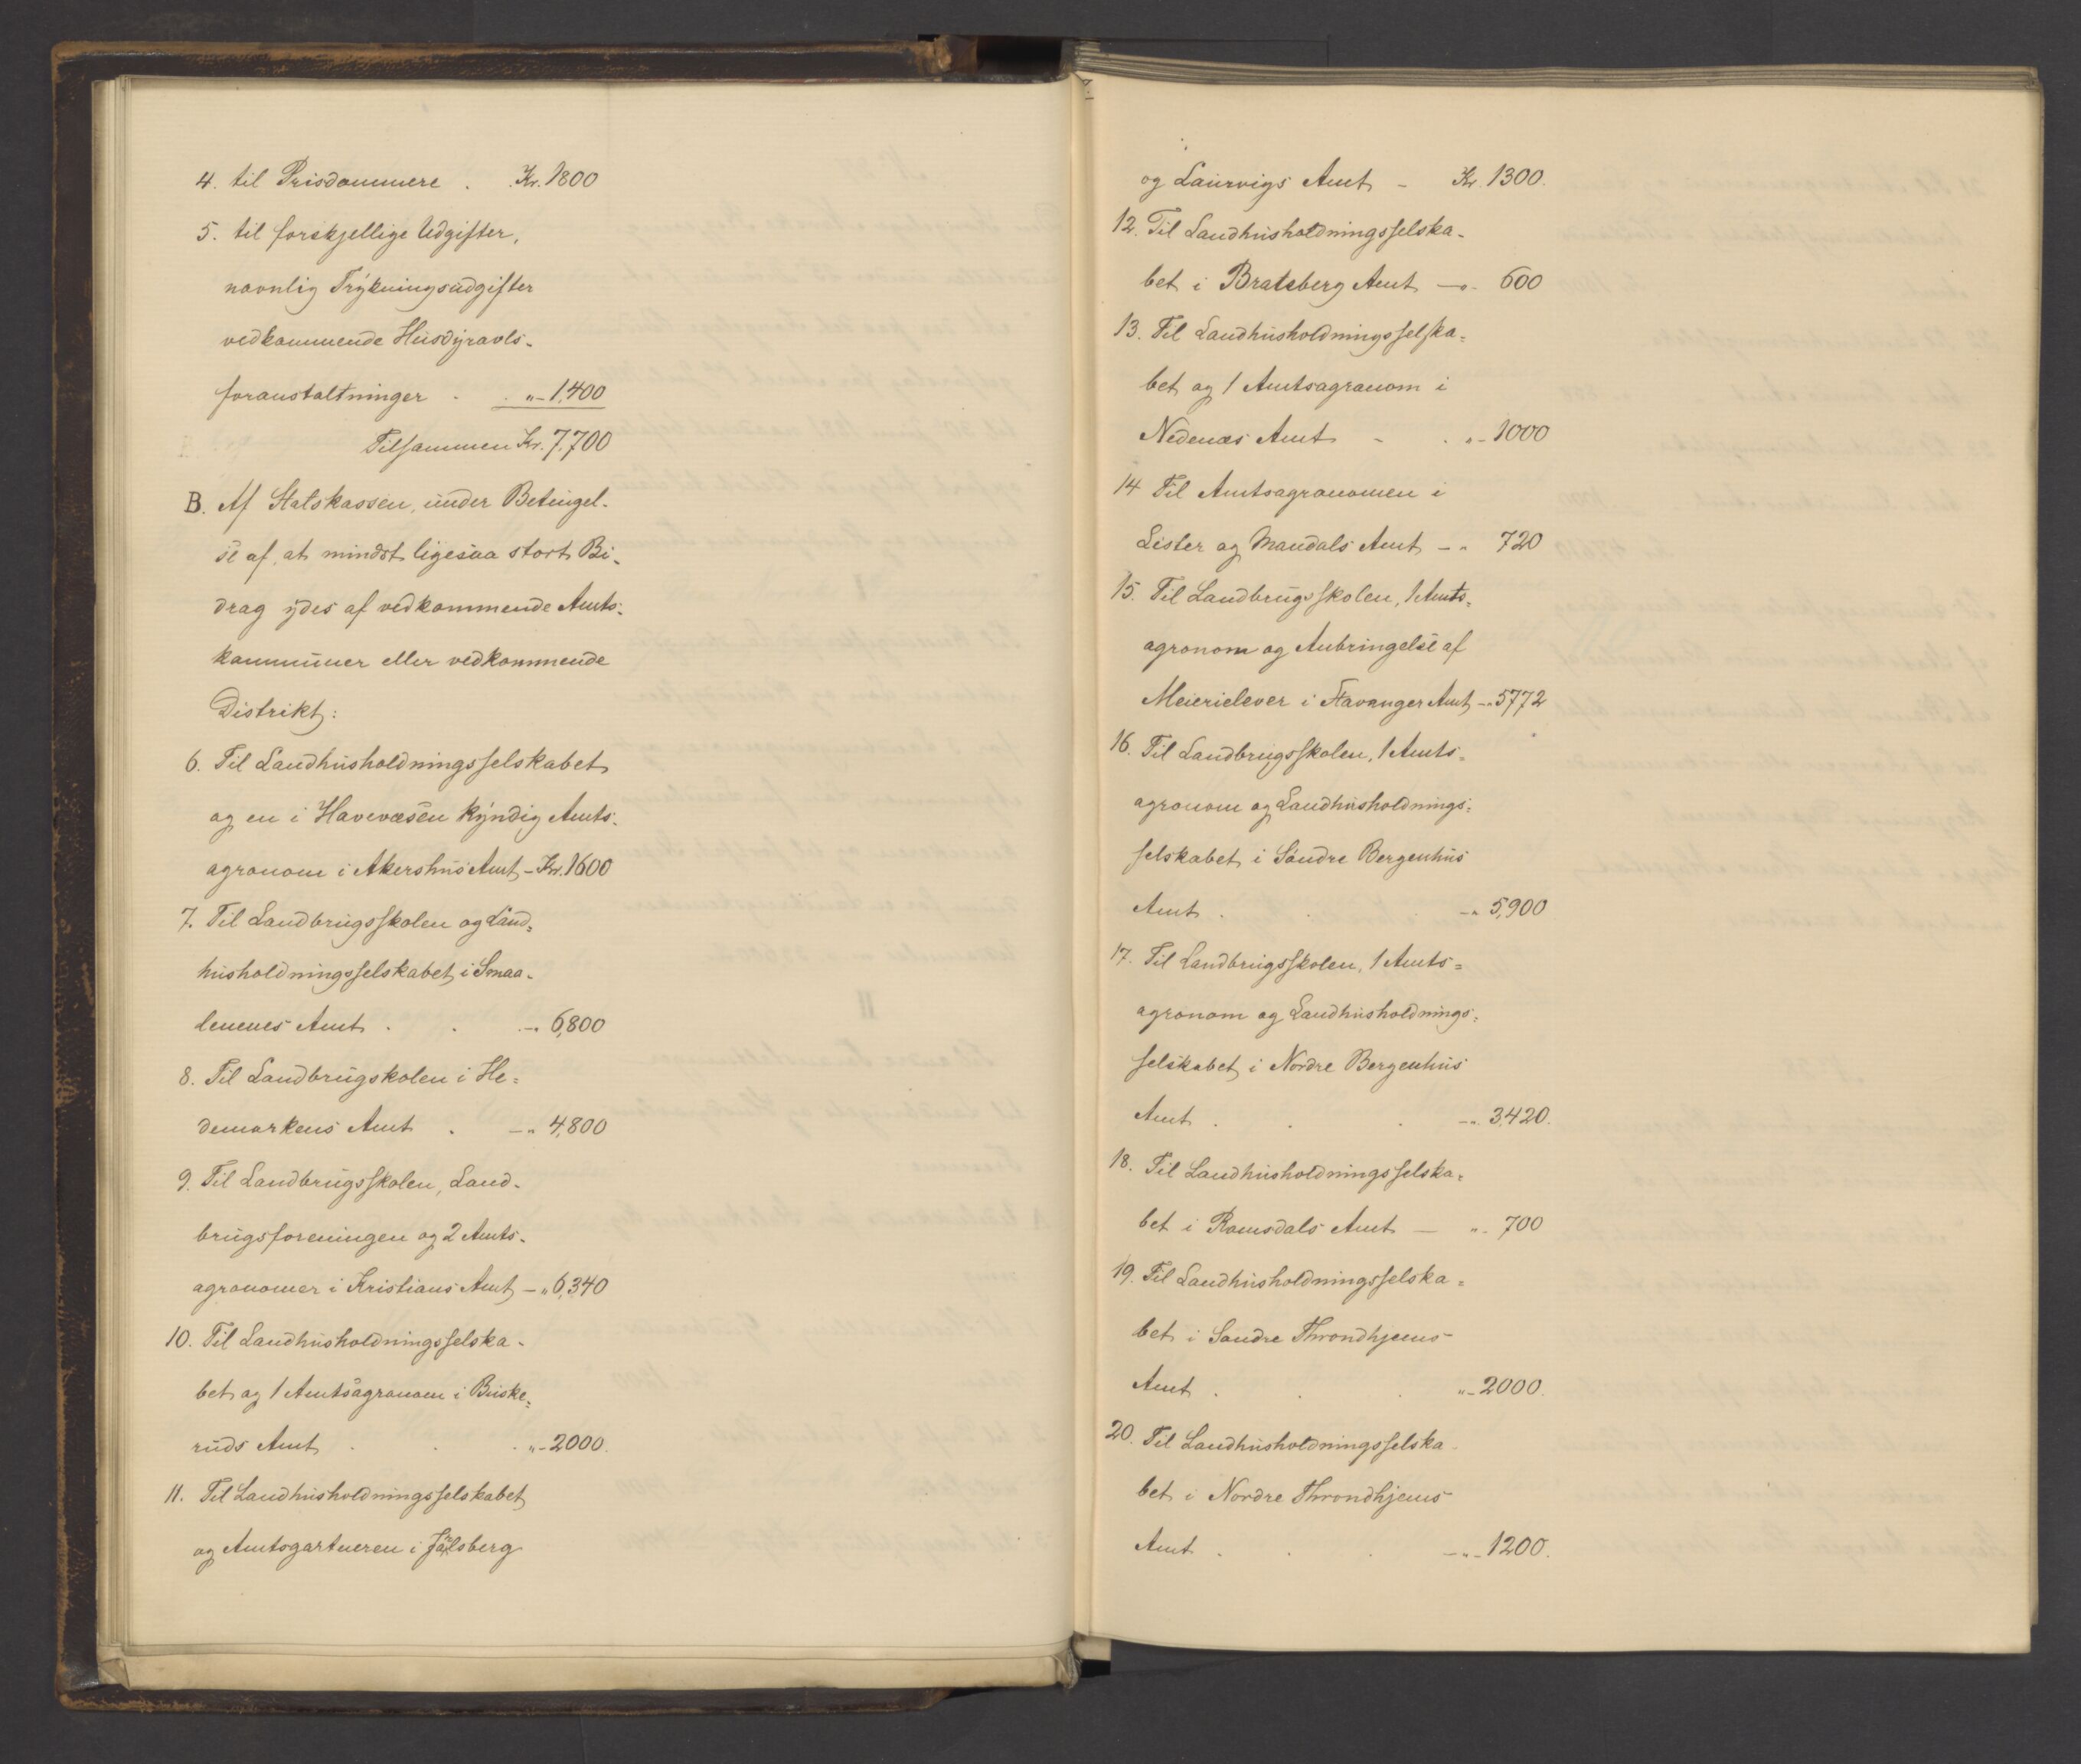 4. til Prisdommere . . Kr. 1800
5. til forskjellige Udgifter,
navnlig Trykningsudgifter
vedkommende Husdyravls-
foranstaltninger . . „ - 1,400
Tilsammen Kr. 7,700
B. Af Statskassen, under Betingel-
se af, at mindst ligesaa stort Bi-
drag ydes af vedkommende Amts-
kommuner eller vedkommende
Distrikt:
6. Til Landhusholdningsselskabet
og en i Havevæsen kyndig Amts-
agronom i Akershus Amt - Kr. 1600
7. Til Landbrugsskolen og Land=
husholdningsselskabet i Smaa-
lenenes Amt . . . - „ 6,800
8. Til Landbrugskolen i He=
demarkens Amt . - „ 4,800
9. Til Landbrugsskolen, Land-
brugsforeningen og 2 Amts-
agronomer i Kristians Amt - „ 6,340
10. Til Landhusholdningsselska-
bet og 1 Amtsagronom i Buske=
ruds Amt . . . „ - 2000.
11. Til Landhusholdningsselskabet
og Amtsgartneren i Jarlsberg
og Laurvigs Amt - Kr. 1300.
12. Til Landhusholdningsselska-
bet i Bratsberg Amt - „ - 600
13. Til Landhusholdningsselska=
bet og 1 Amtsagronom i
Nedenæs Amt - . „ - 1000
14 Til Amtsagronomen i
Lister og Mandals Amt - „ 720
15. Til Landbrugsskolen, 1 Amts=
agronom og Anbringelse af
Meierielever i Stavanger Amt - „ 5772
16. Til Landbrugsskolen, 1 Amts=
agronom og Landhusholdnings=
selskabet i Søndre Bergenhus
Amt . . - „ 5,900
17. Til Landbrugsskolen, 1 Amts=
agronom og Landhusholdnings=
selskabet i Nordre Bergenhus
Amt . . . - „ 3,420.
18. Til Landhusholdningsselska=
bet i Romsdals Amt - „ - 700
19. Til Landhusholdningsselska=
bet i Søndre Throndhjems
Amt . . . „ - 2000.
20. Til Landhusholdningsselska-
bet i Nordre Throndhjems
Amt . . . - „ - 1200.